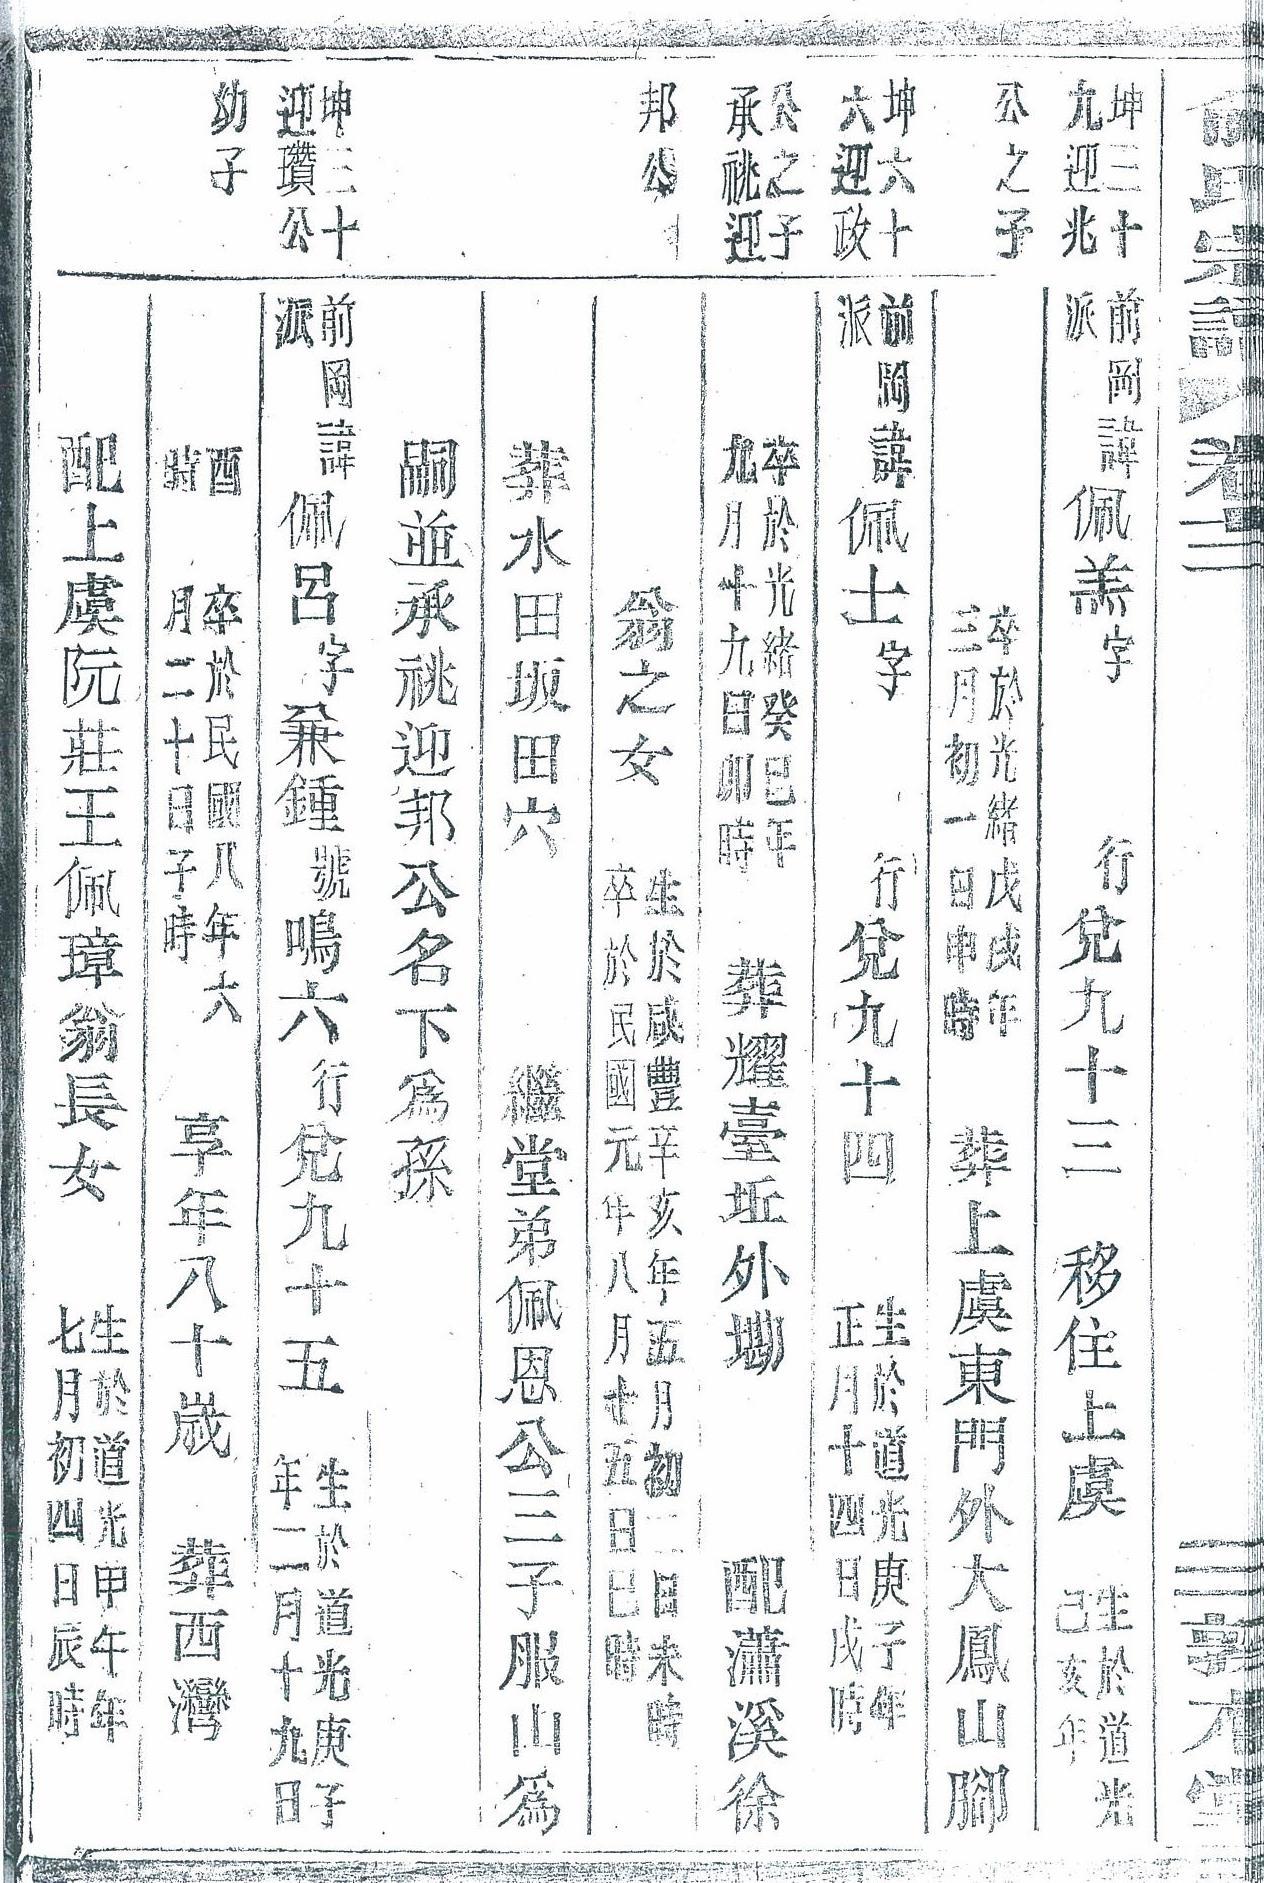 俞氏宗譜 卷二 三 敦本堂
坤三十
九迎兆
公之子
前岡諱
派
佩羔字 行兌九十三 移住上虞 生於道光
己亥年
三月初一日申時
卒於光緒戊戌年
葬上虞東門外大鳳山腳
坤六十
六迎政
公之子
承祧迎
邦公
前岡諱
派
佩士字 行兌九十四 生於道光庚子年
正月十四日戌時
卒於光緒癸巳年
九月十九日卯時
葬耀臺坵外墈 配瀟溪徐
翁之女 生於咸豐辛亥年五月初二日未時
卒於民國元年八月廿五日巳時
葬水田坂田穴 繼堂弟佩恩公三子服山為
嗣並承祧迎邦公名下為孫
坤三十
迎瓚公
幼子
前岡諱
派
佩呂字兼鍾號鳴六行兌九十五 生於道光庚子
年二月十九日
酉
時
卒於民國八年六
月二十日子時
享年八十歲 葬西灣
配上虞阮莊王佩璋翁長女 生於道光甲午年
七月初四日辰時